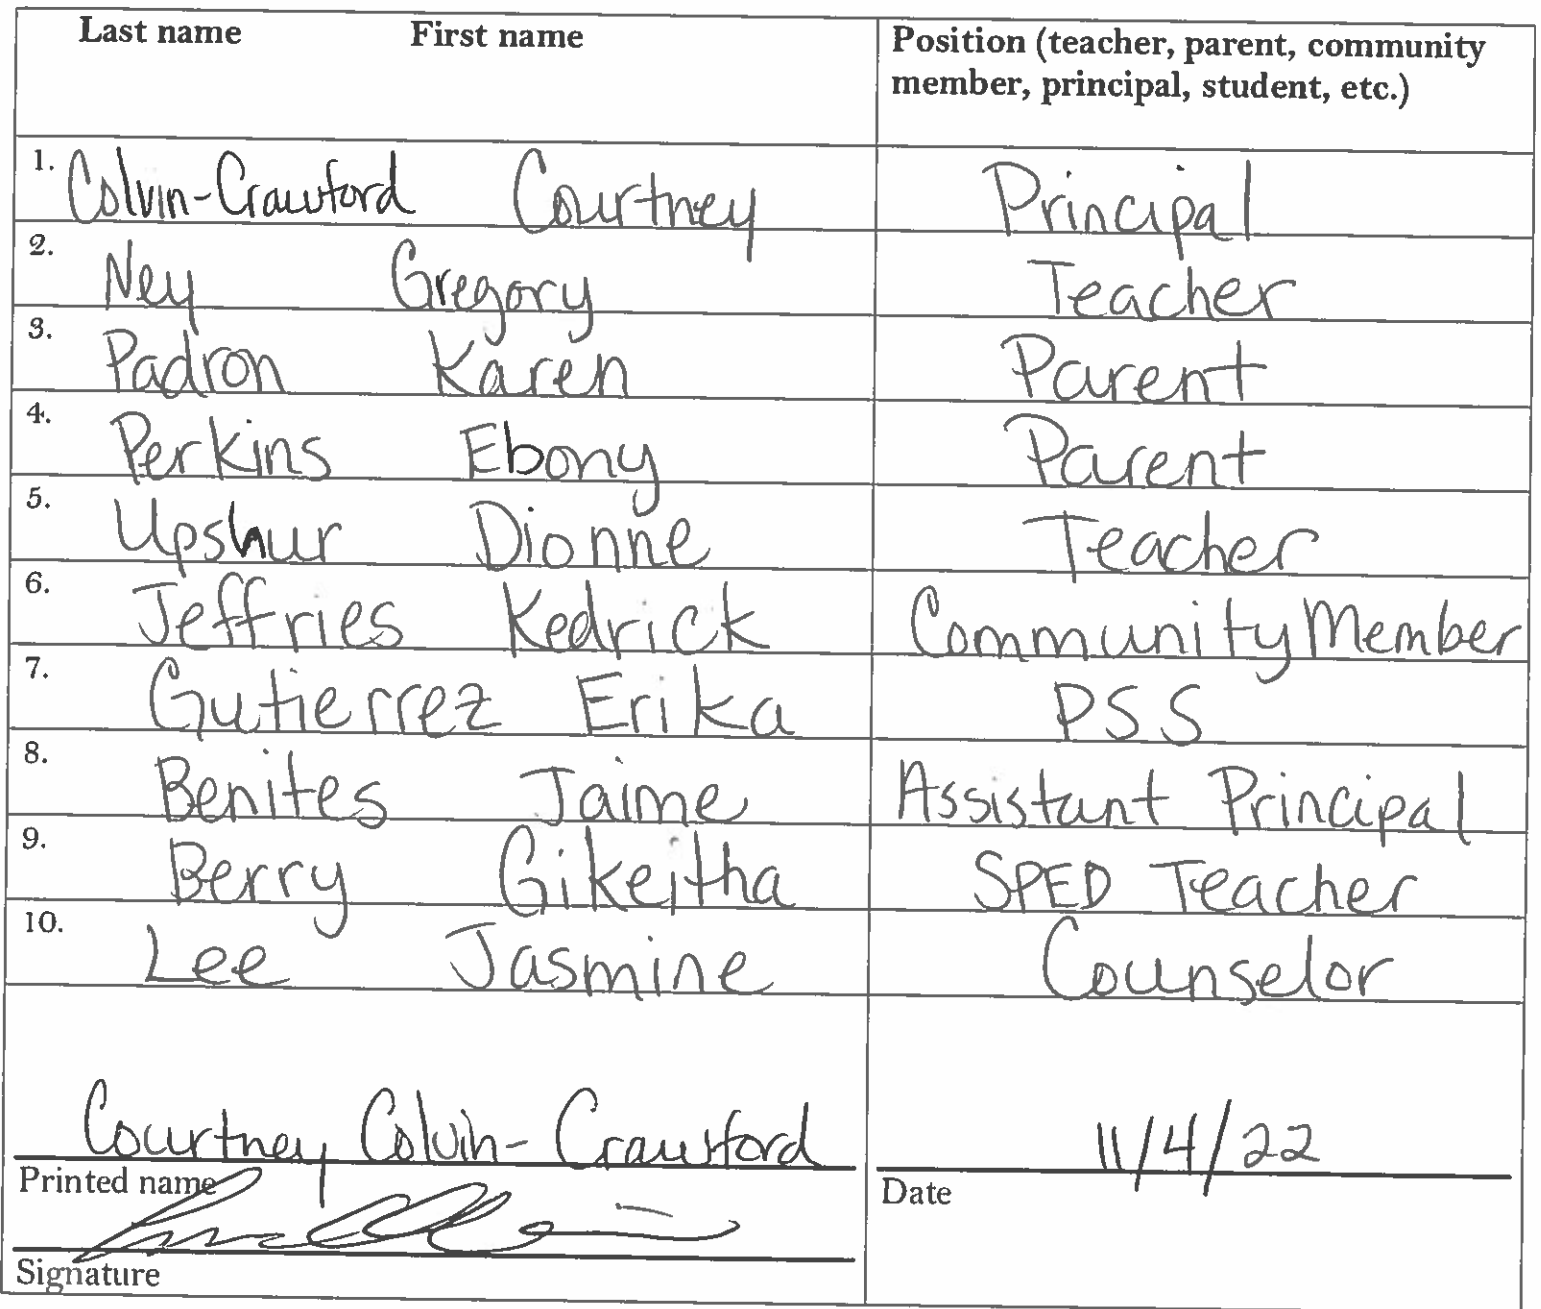 Last name First name Position (teacher, parent, community
member, principal, student, etc.)
1. Colvin-Crawford Courtney Principal
2. Ney Gregory Teacher
3. Padron Karen Parent
4. Perkins Ebony Parent
5. Upshur Dionne Teacher
6. Jeffries Kedrick Community Member
7. Gutierrez Erika PSS
8. Benites Jaime Assistant Principal
9. Berry Gikeitha SPED Teacher
10. Lee Jasmine Counselor
Courtney Colvin-Crawford 11/4/22
Printed name Date
Signature